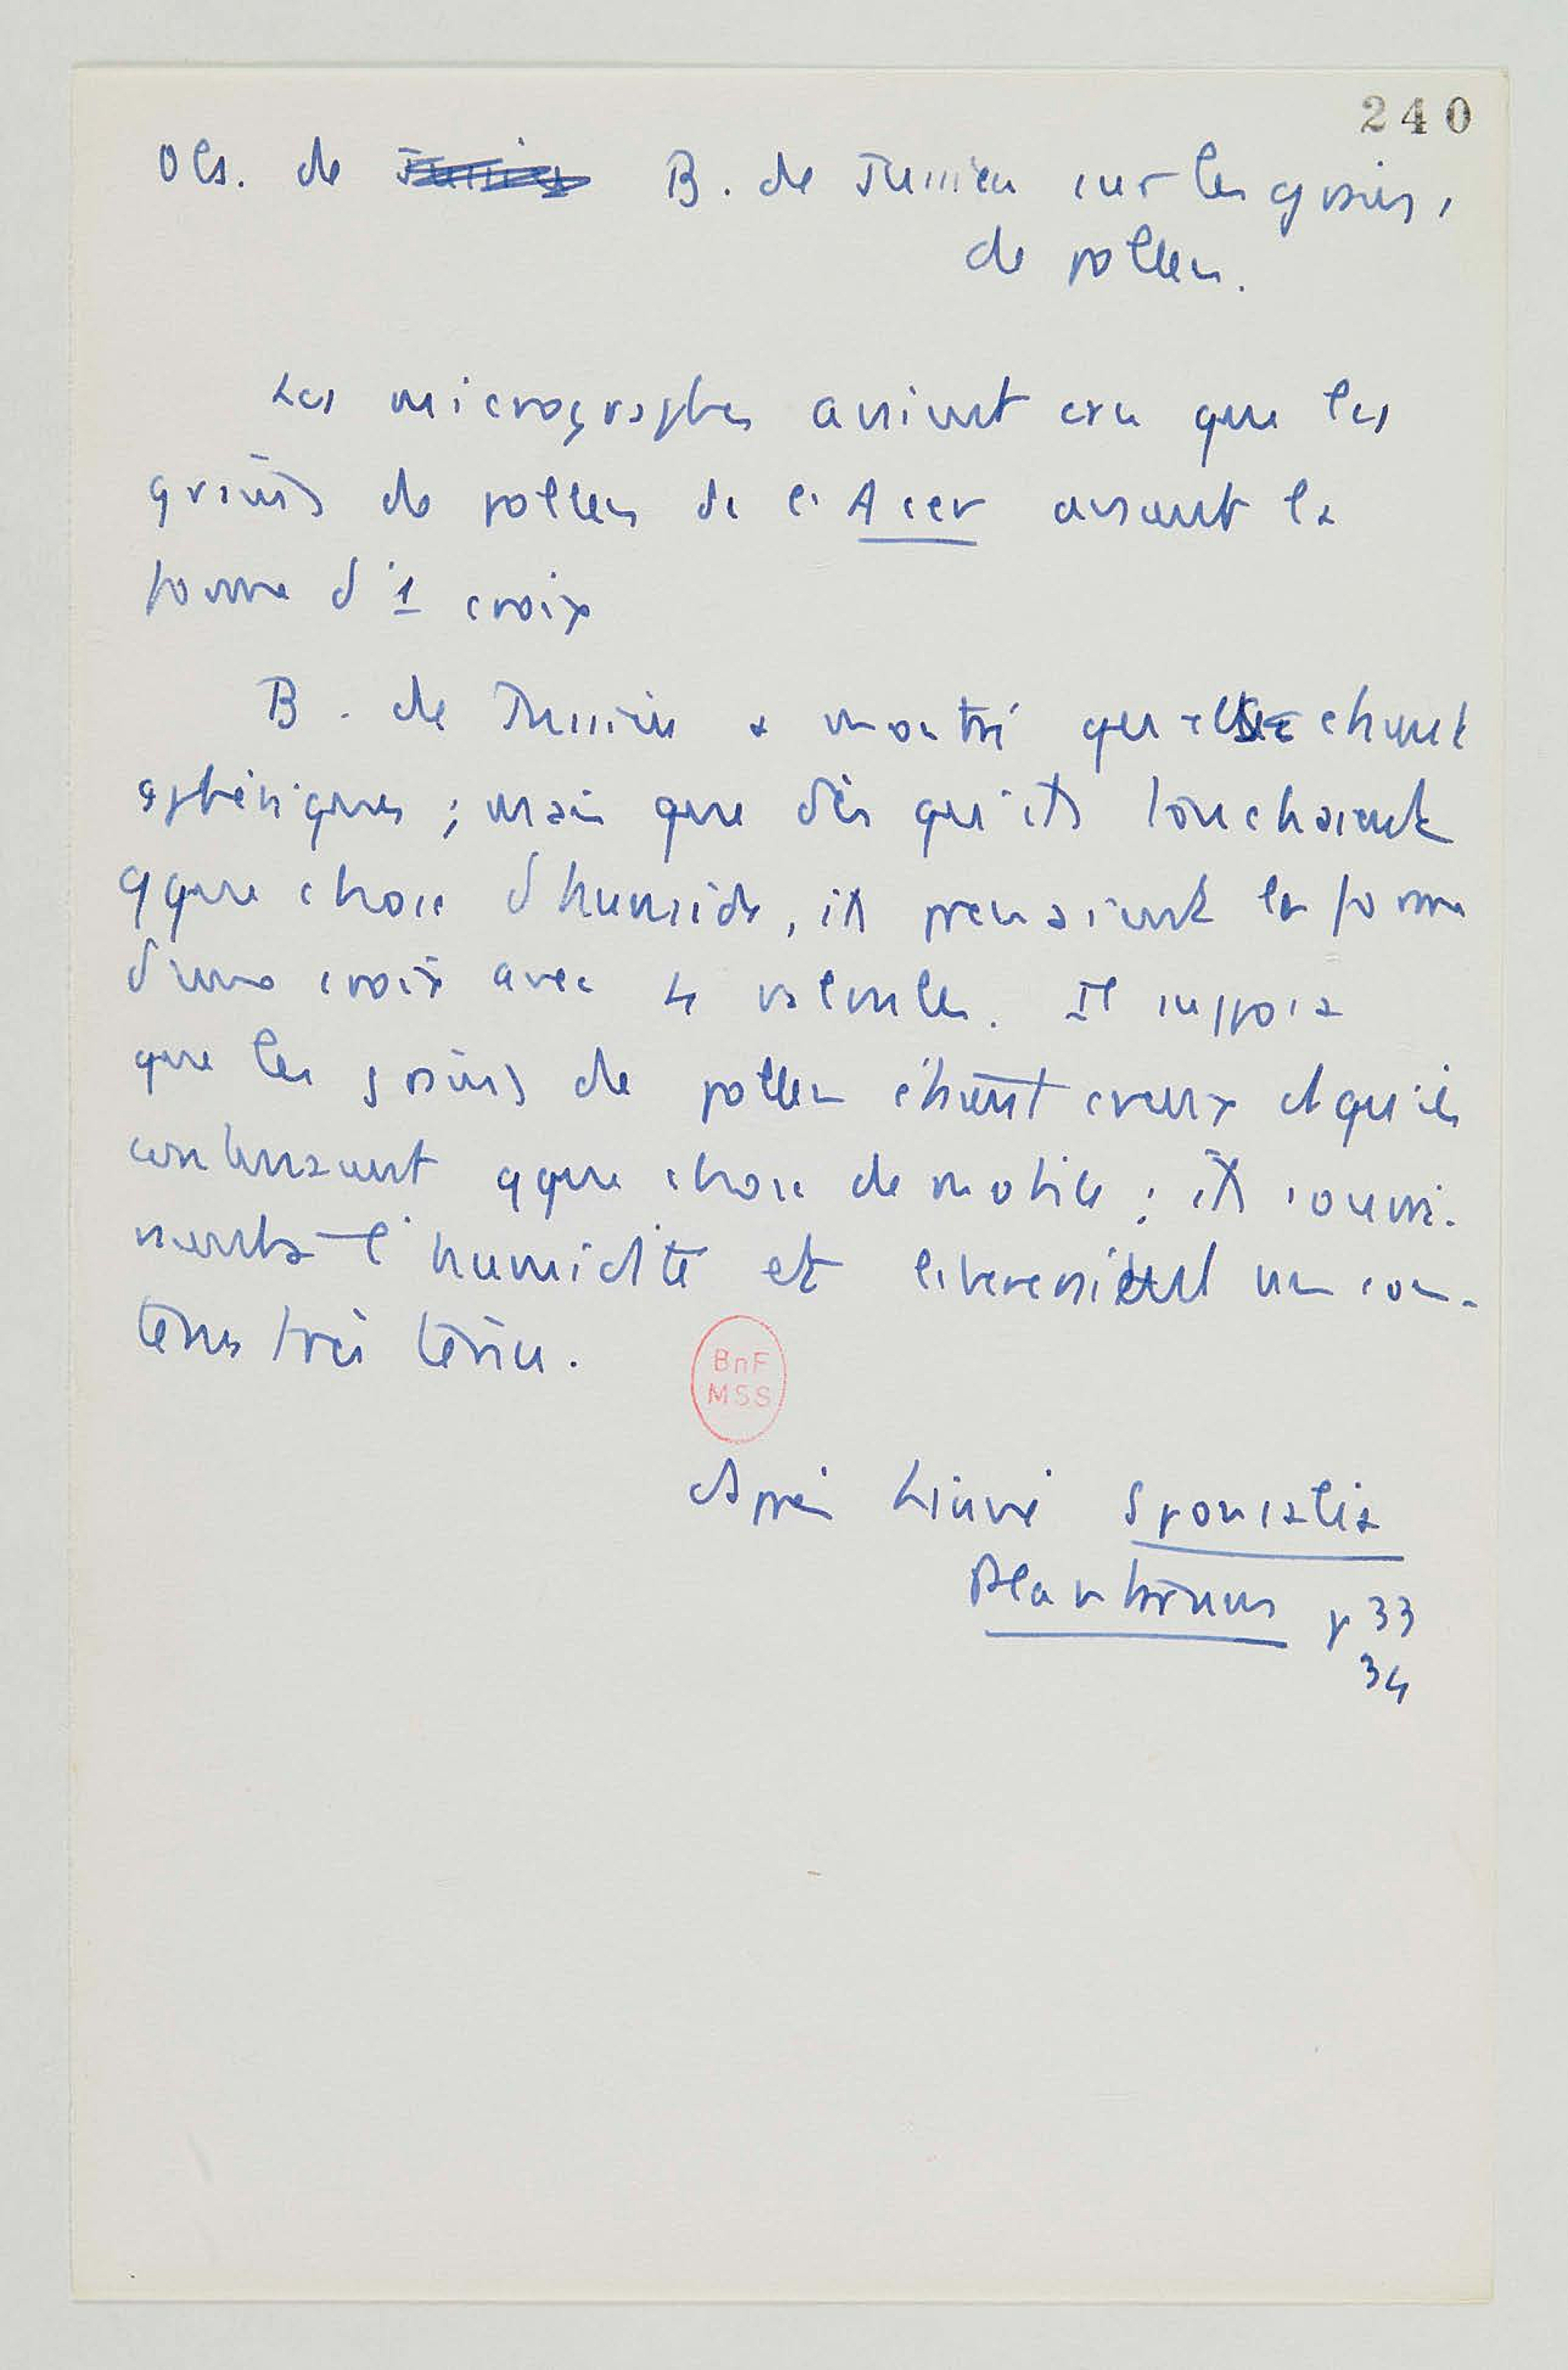 240
Obs. de Jussieu B. de Jussieu sur les grains
de pollen.
Les micrographes avaient cru que les
grains de pollen de l'Acer avaient la
forme d'1 croix
B. de Jussieu a montré qu'elles étaient
sphériques ; mais que dès qu'ils touchaient
qque chose d'humide, ils prenaient la forme
d'une croix avec 4 valvules. Il supposa
que les grains de pollen étaient creux et qu'ils
contenaient qque chose de mobile ; ils
l'humidité et un con-
tenu très ténu.
BnF
MSS
Après Linné Sponsalia
Plantarum p 33
34